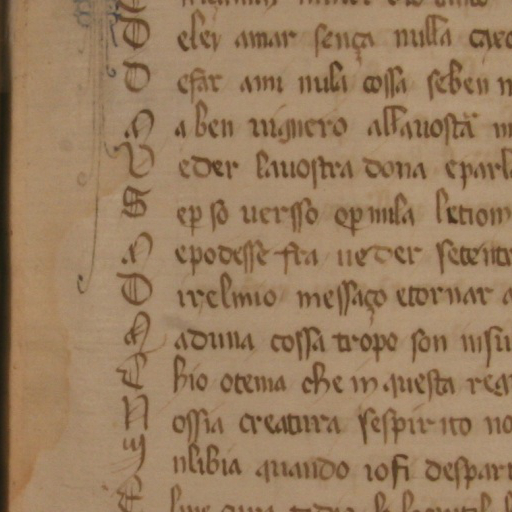 D eley amar sença nulla
D efar ami nula cossa seben
M a ben uignero allauosta
V eder lauostra dona eparl
S ep so uersso op mila letiom
M epodesse fra ueder setentr
D irelmio messaço etornar a
M aduna cossa tropo son insu
C hio otema che in questa reg
N ossia creatura sespirito no
I nlibia quando iosi despart